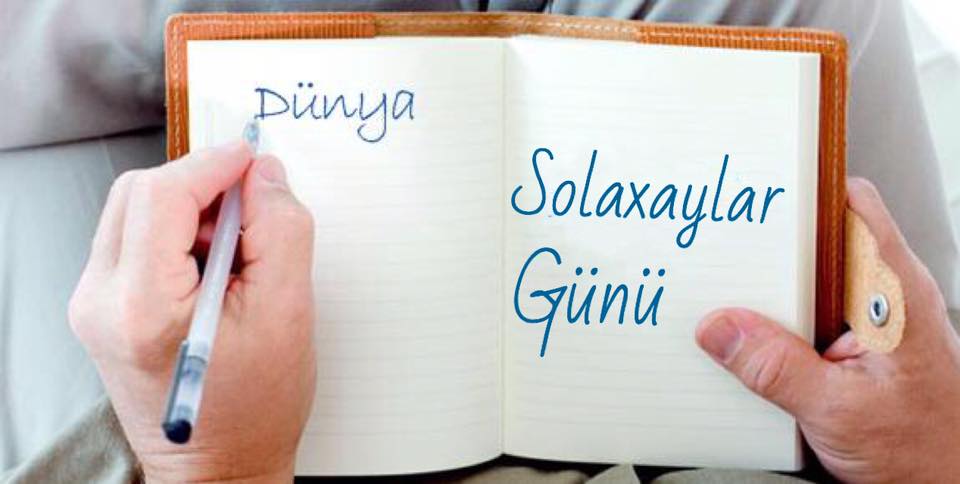 Dünya
Solaxaylar
Günü